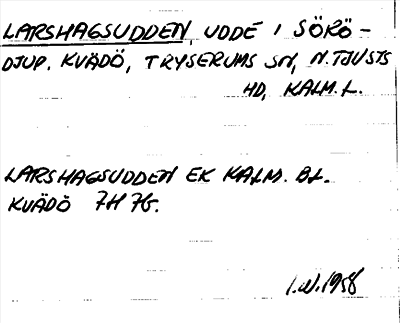 LARSHAGSUDDEN, UDDE I SÖRÖ-
DJUP. KVÄDÖ, TRYSERUMS SN, N. TJUSTS
HD, KALM. L.
LARSHAGSUDDEN EK KALM. BL.
KVÄDÖ 7H 7G.
I.W. 1958